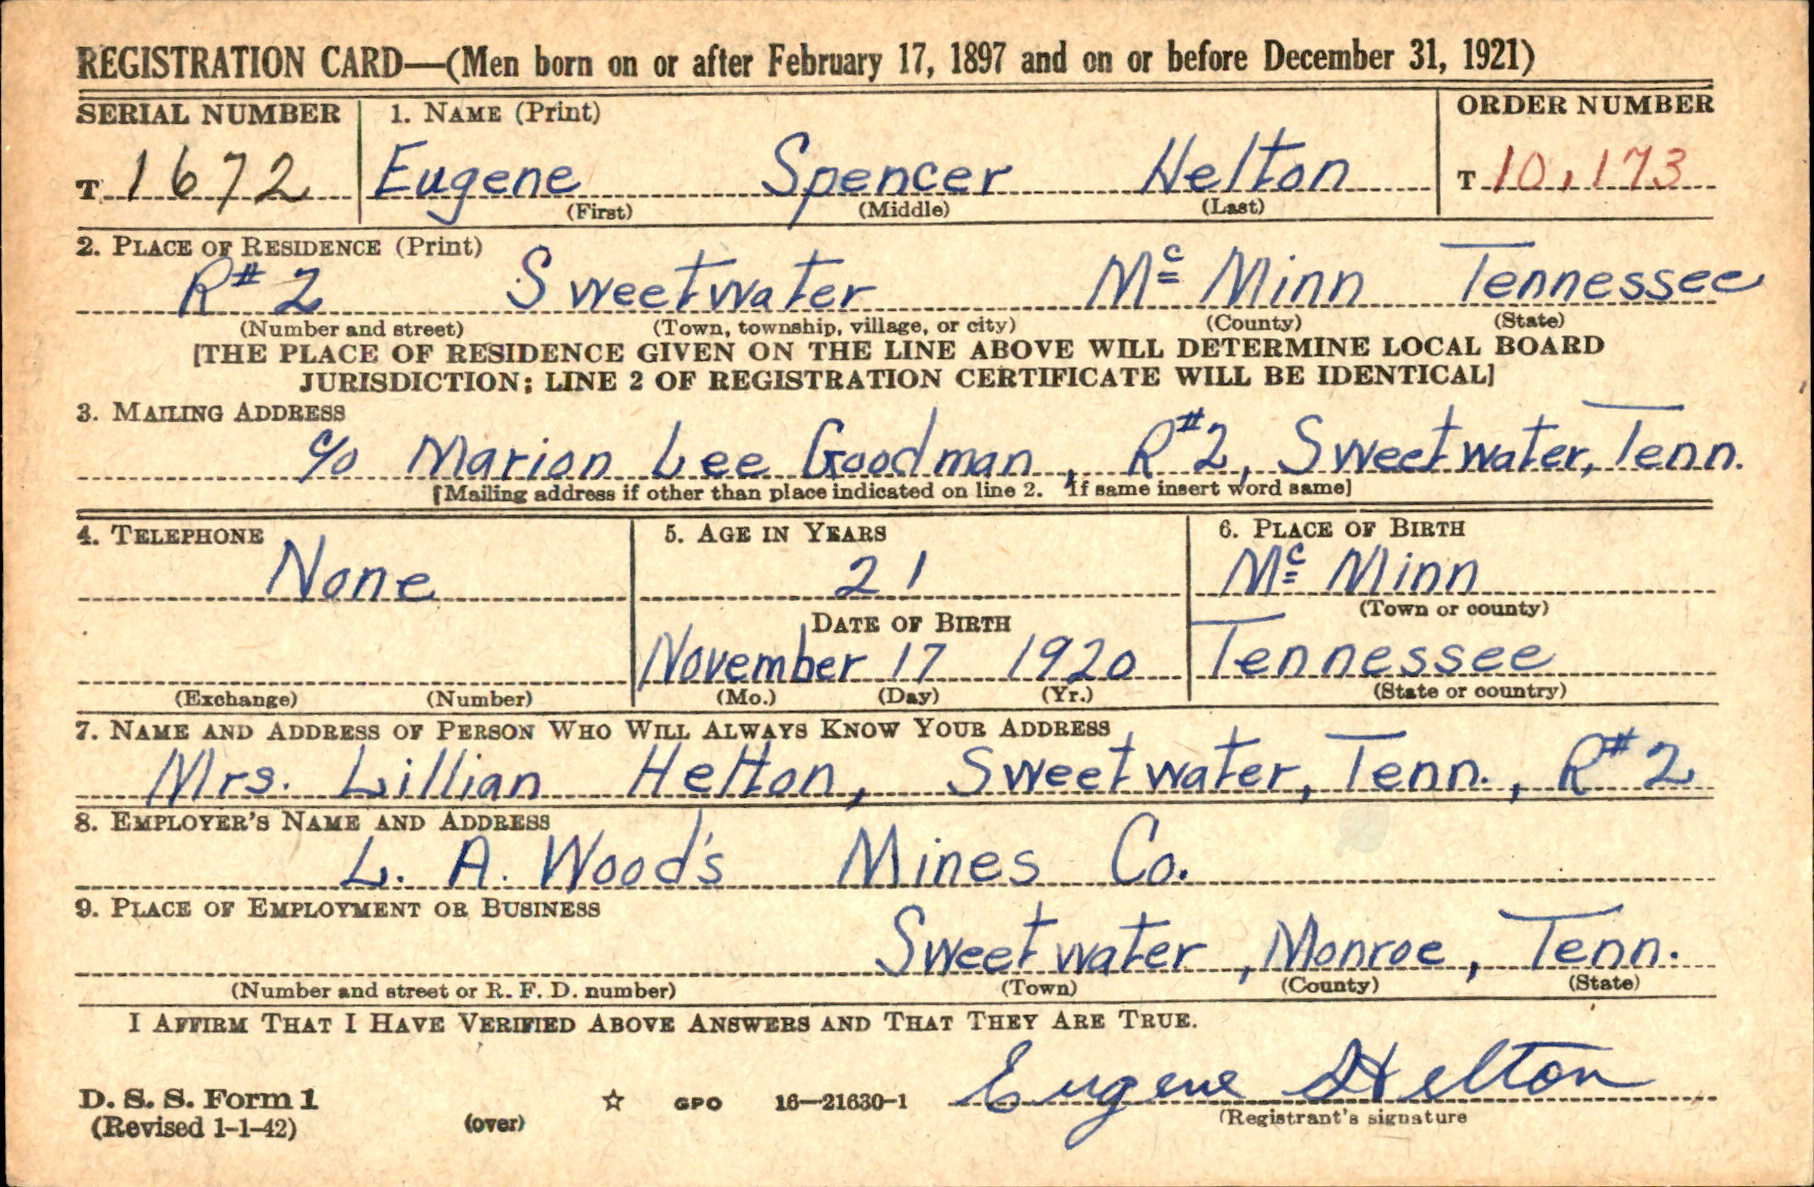 REGISTRATION CARD—(Men born on or after February 17, 1897 and on or before December 31, 1921)
SERIAL NUMBER 1. NAME (Print) ORDER NUMBER
T 1672 Eugene Spencer Helton T 10,173
(First) (Middle) (Last)
2. PLACE OF RESIDENCE (Print)
R# 2 Sweetwater Mc Minn Tennessee
(Number and street) (Town, township, village, or city) (County) (State)
[THE PLACE OF RESIDENCE GIVEN ON THE LINE ABOVE WILL DETERMINE LOCAL BOARD
JURISDICTION; LINE 2 OF REGISTRATION CERTIFICATE WILL BE IDENTICAL]
3. MAILING ADDRESS
c/o Marion Lee Goodman, R#2, Sweetwater, Tenn.
[Mailing address if other than place indicated on line 2. If same insert word same]
4. TELEPHONE 5. AGE IN YEARS 6. PLACE OF BIRTH
None 21 Mc Minn
(Town or county)
DATE OF BIRTH
November 17 1920 Tennessee
(Exchange) (Number) (Mo.) (Day) (Yr.) (State or country)
7. NAME AND ADDRESS OF PERSON WHO WILL ALWAYS KNOW YOUR ADDRESS
Mrs. Lillian Helton, Sweetwater, Tenn., R#2
8. EMPLOYER'S NAME AND ADDRESS
L. A. Wood's Mines Co.
9. PLACE OF EMPLOYMENT OR BUSINESS
Sweetwater, Monroe, Tenn.
(Number and street or R. F. D. number) (Town) (County) (State)
I AFFIRM THAT I HAVE VERIFIED ABOVE ANSWERS AND THAT THEY ARE TRUE.
Eugene Helton
D. S. S. Form 1 ☆ GPO 16—21630-1
(Registrant's signature
(Revised 1-1-42) (over)